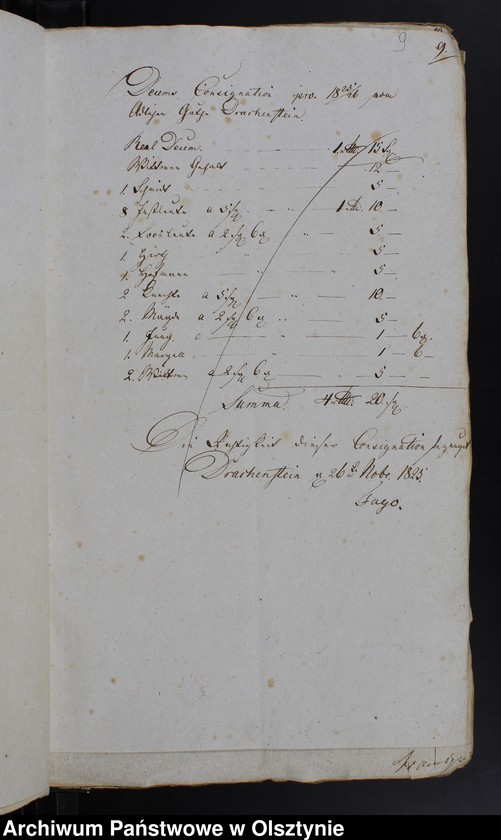 9 9.
Decems Consignation pro. 18 25/26 vom
Adlichen Guthe Drachenstein.
Real Decem. 1 rtlr. 15 Sg
Wittwen Gehalt 12 —
1. Schmidt 5 —
8 Instleute a 5 sg 1 rtl. 10 —
2. Losleute a 2 sg 6 d 5 —
1. Hirt 5 —
1. Hofmann 5 —
2 Knechte a 5 sg 10 —
2. Mägde a 2 sg 6 d 5 —
1. Jung 1 — 6 d.
1. Margell 1 — 6 —
2. Wittwen a 2 sg 6 d 5 —
Summa. 4 rtlr. 20 sg
Die Richtigkeit dieser Consignation bezeuget
Drachenstein d 26t. Nobr. 1825.
Fago.
Archiwum Państwowe w Olsztynie